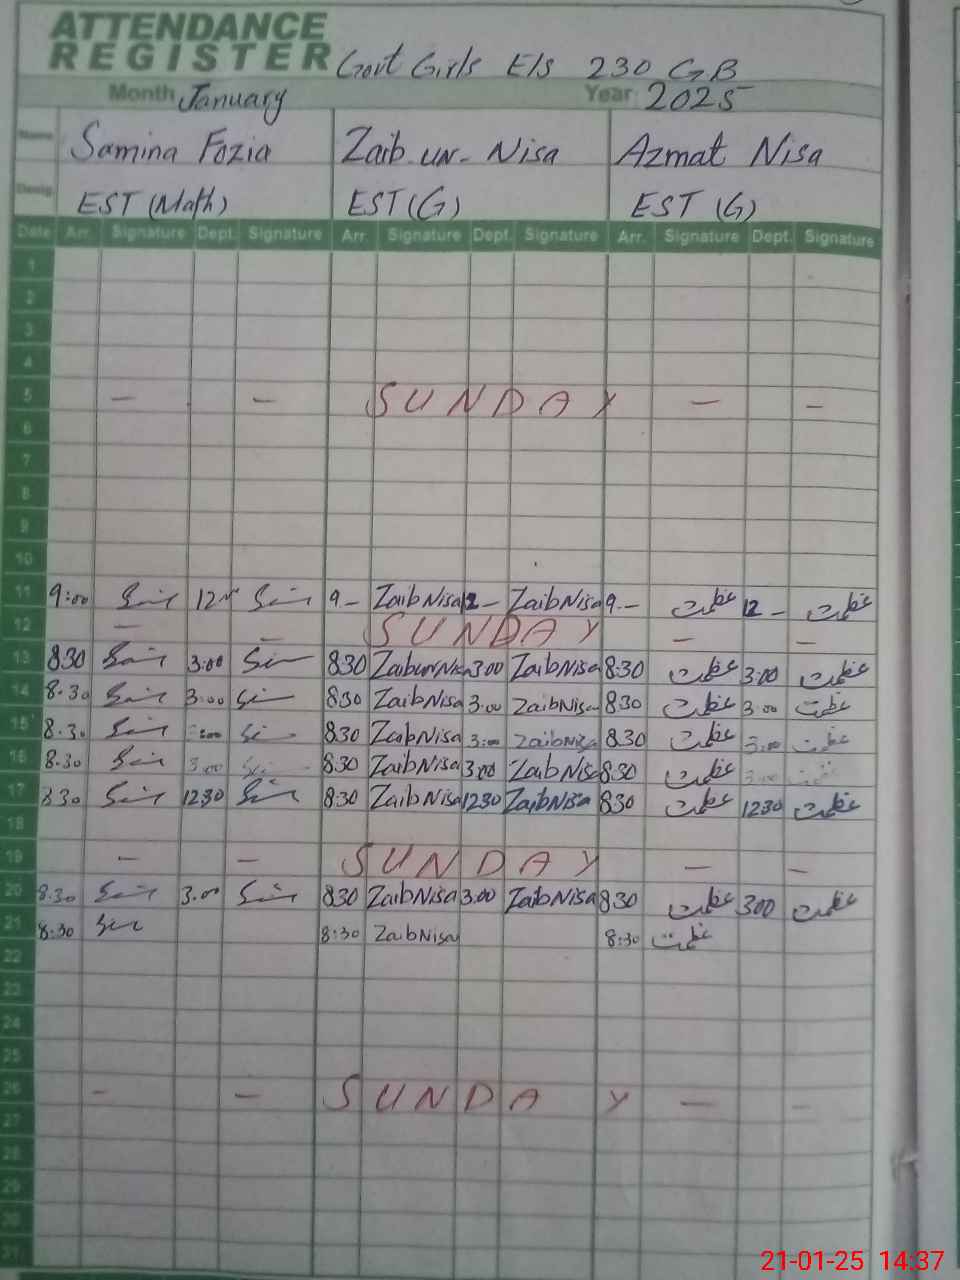 ATTENDANCE
REGISTER Govt Girls E/S 230 GB
Month January Year 2025
Name Samina Fozia Zaib-un-Nisa Azmat Nisa
Desig. EST (Math) EST (G) EST (G)
Date Arr. Signature Dept. Signature Arr. Signature Dept. Signature Arr. Signature Dept. Signature
1
2
3
4
5 — — SUNDAY — —
6
7
8
9
10
11 9:00 12 9— ZaibNisa 12— ZaibNisa 9.— عظمت 12— عظمت
12 — — SUNDAY — —
13 830 3:00 830 ZaibunNisa 300 ZaibNisa 8:30 عظمت 3:00 عظمت
14 8.30 3:00 830 ZaibNisa 3:00 ZaibNisa 830 عظمت 3:00 عظمت
15 8.30 3:00 830 ZaibNisa 3:00 ZaibNisa 8.30 عظمت 3:00 عظمت
16 8.30 3:00 830 ZaibNisa 3:00 ZaibNisa 8:30 عظمت 3:00 عظمت
17 830 1230 8:30 ZaibNisa 1230 ZaibNisa 830 عظمت 1230 عظمت
18
19 — — SUNDAY — —
20 8.30 3.00 830 ZaibNisa 3:00 ZaibNisa 830 عظمت 300 عظمت
21 8:30 8:30 ZaibNisa 8:30 عظمت
22
23
24
25
26 — — SUNDAY — —
27
28
29
30
31
21-01-25 14:37